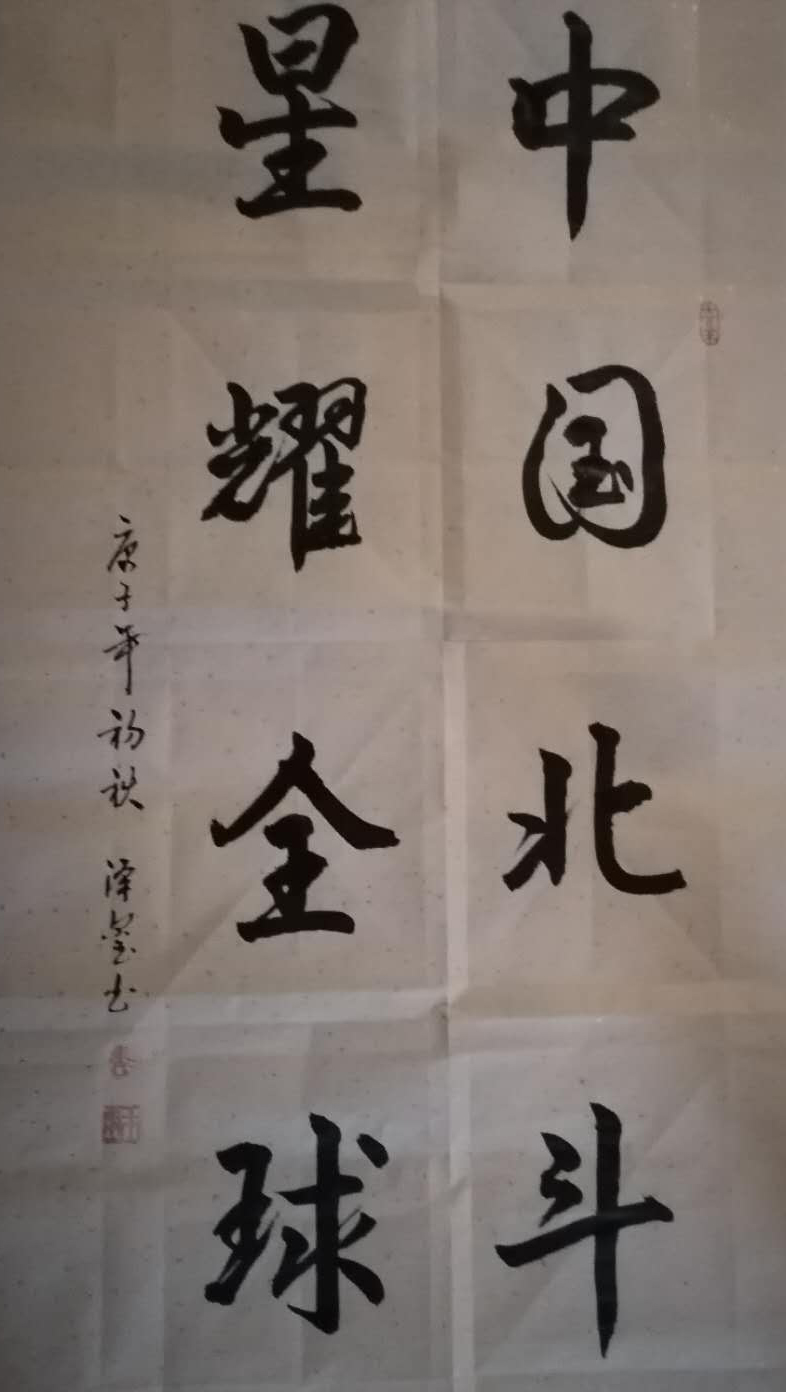 中国北斗
星耀全球
庚子年初秋 泽玺书